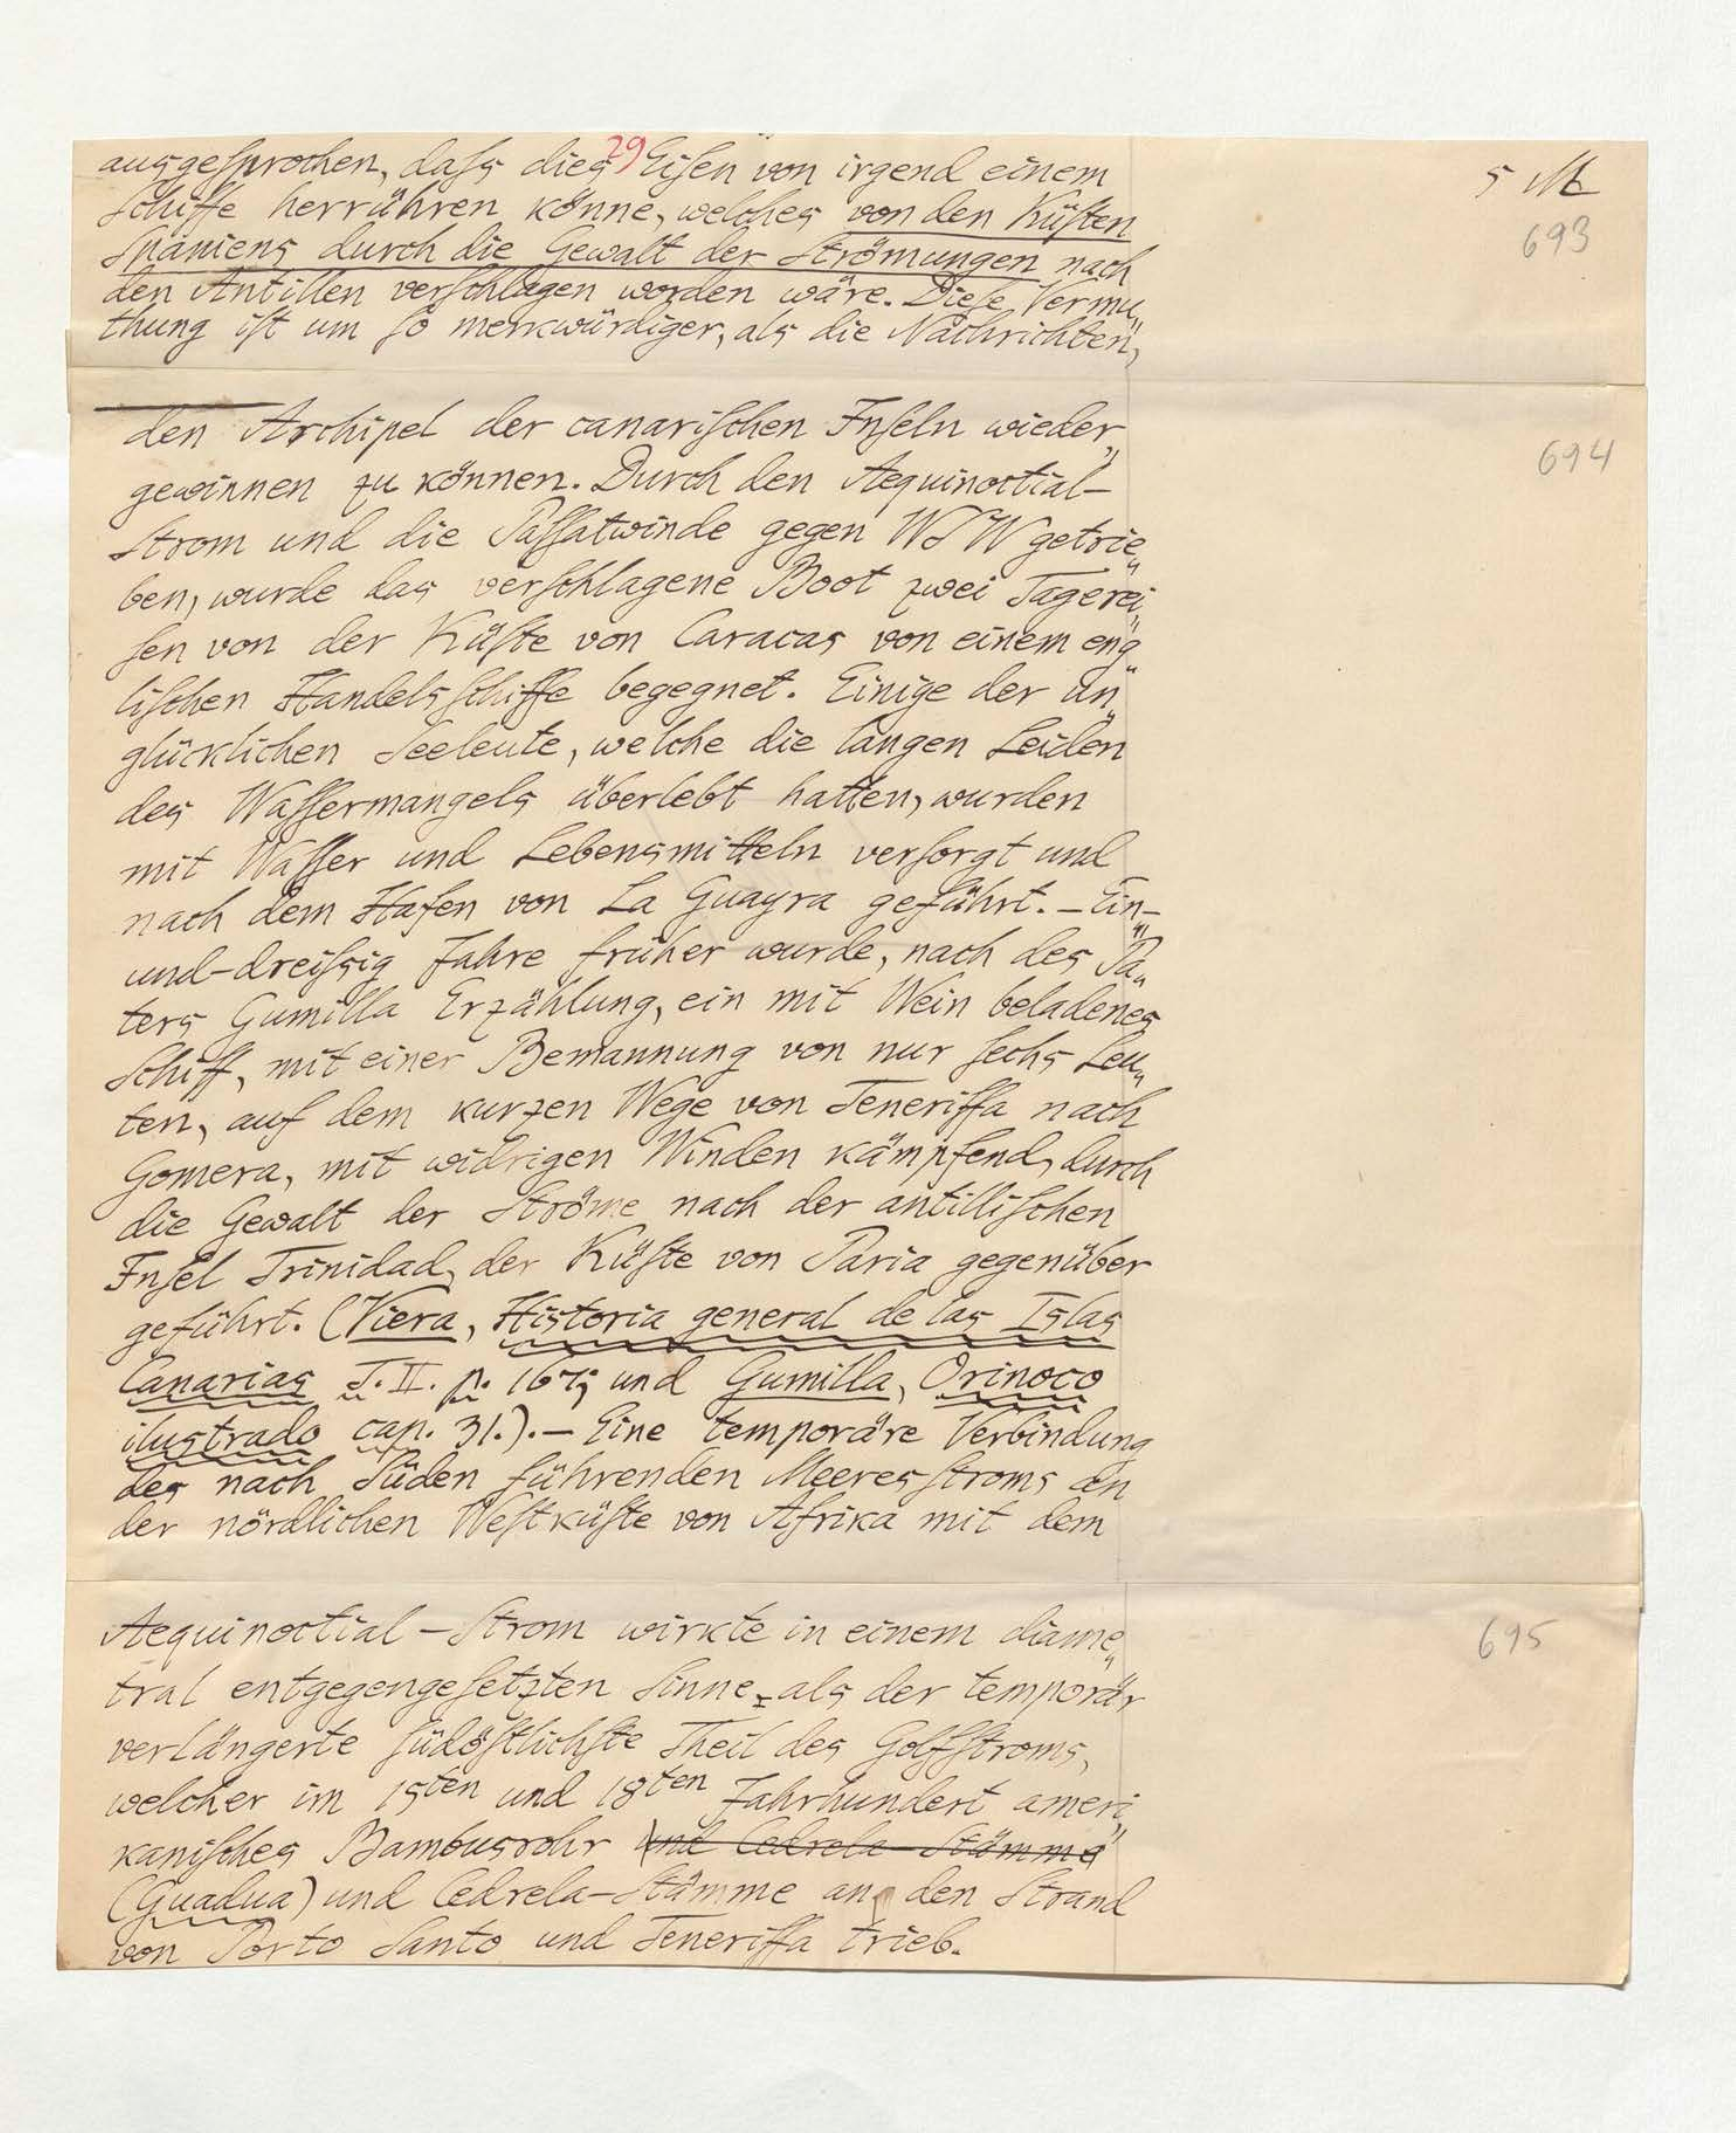 ausgesprochen, dass dies Eisen von irgend einem
29
5 M
Schiffe herrühren könne, welches von den Küsten
693
Spaniens durch die Gewalt der Strömungen nach
den Antillen verschlagen worden wäre. Diese Vermu„
thung ist um so merkwürdiger, als die Nachrichten,
den Archipel der canarischen Inseln wieder„
694
gewinnen zu können. Durch den Aequinoctial-
Strom und die Passatwinde gegen WSW getrie„
ben, wurde das verschlagene Boot zwei Tagerei„
sen von der Küste von Caracas von einem eng„
lischen Handelsschiffe begegnet. Einige der un„
glücklichen Seeleute, welche die langen Leiden
des Wassermangels überlebt hatten, wurden
mit Wasser und Lebensmitteln versorgt und
nach dem Hafen von La Guayra geführt. – Ein-
und-dreissig Jahre früher wurde, nach des Pa„
ters Gumilla Erzählung, ein mit Wein beladenes
Schiff, mit einer Bemannung von nur sechs Leu„
ten, auf dem kurzen Wege von Teneriffa nach
Gomera, mit widrigen Winden kämpfend, durch
die Gewalt der Ströme nach der antillischen
Insel Trinidad, der Küste von Paria gegenüber
geführt. (Viera, Historia general de las Islas
Canarias T. II. p. 167; und Gumilla, Orinoco
ilustrado cap. 31.). – Eine temporäre Verbindung
des nach Süden führenden Meeresstroms an
der nördlichen Westküste von Afrika mit dem
Aequinoctial-Strom wirkte in einem diame„
695
tral entgegengesetzten Sinne als der temporär
verlängerte südöstlichste Theil des Golfstroms,
welcher im 15ten und 18ten Jahrhundert ameri„
kanisches Bambusrohr und Cedrela-Stämme
(Guadua) und Cedrela-Stämme an den Strand
von Porto Santo und Teneriffa trieb.